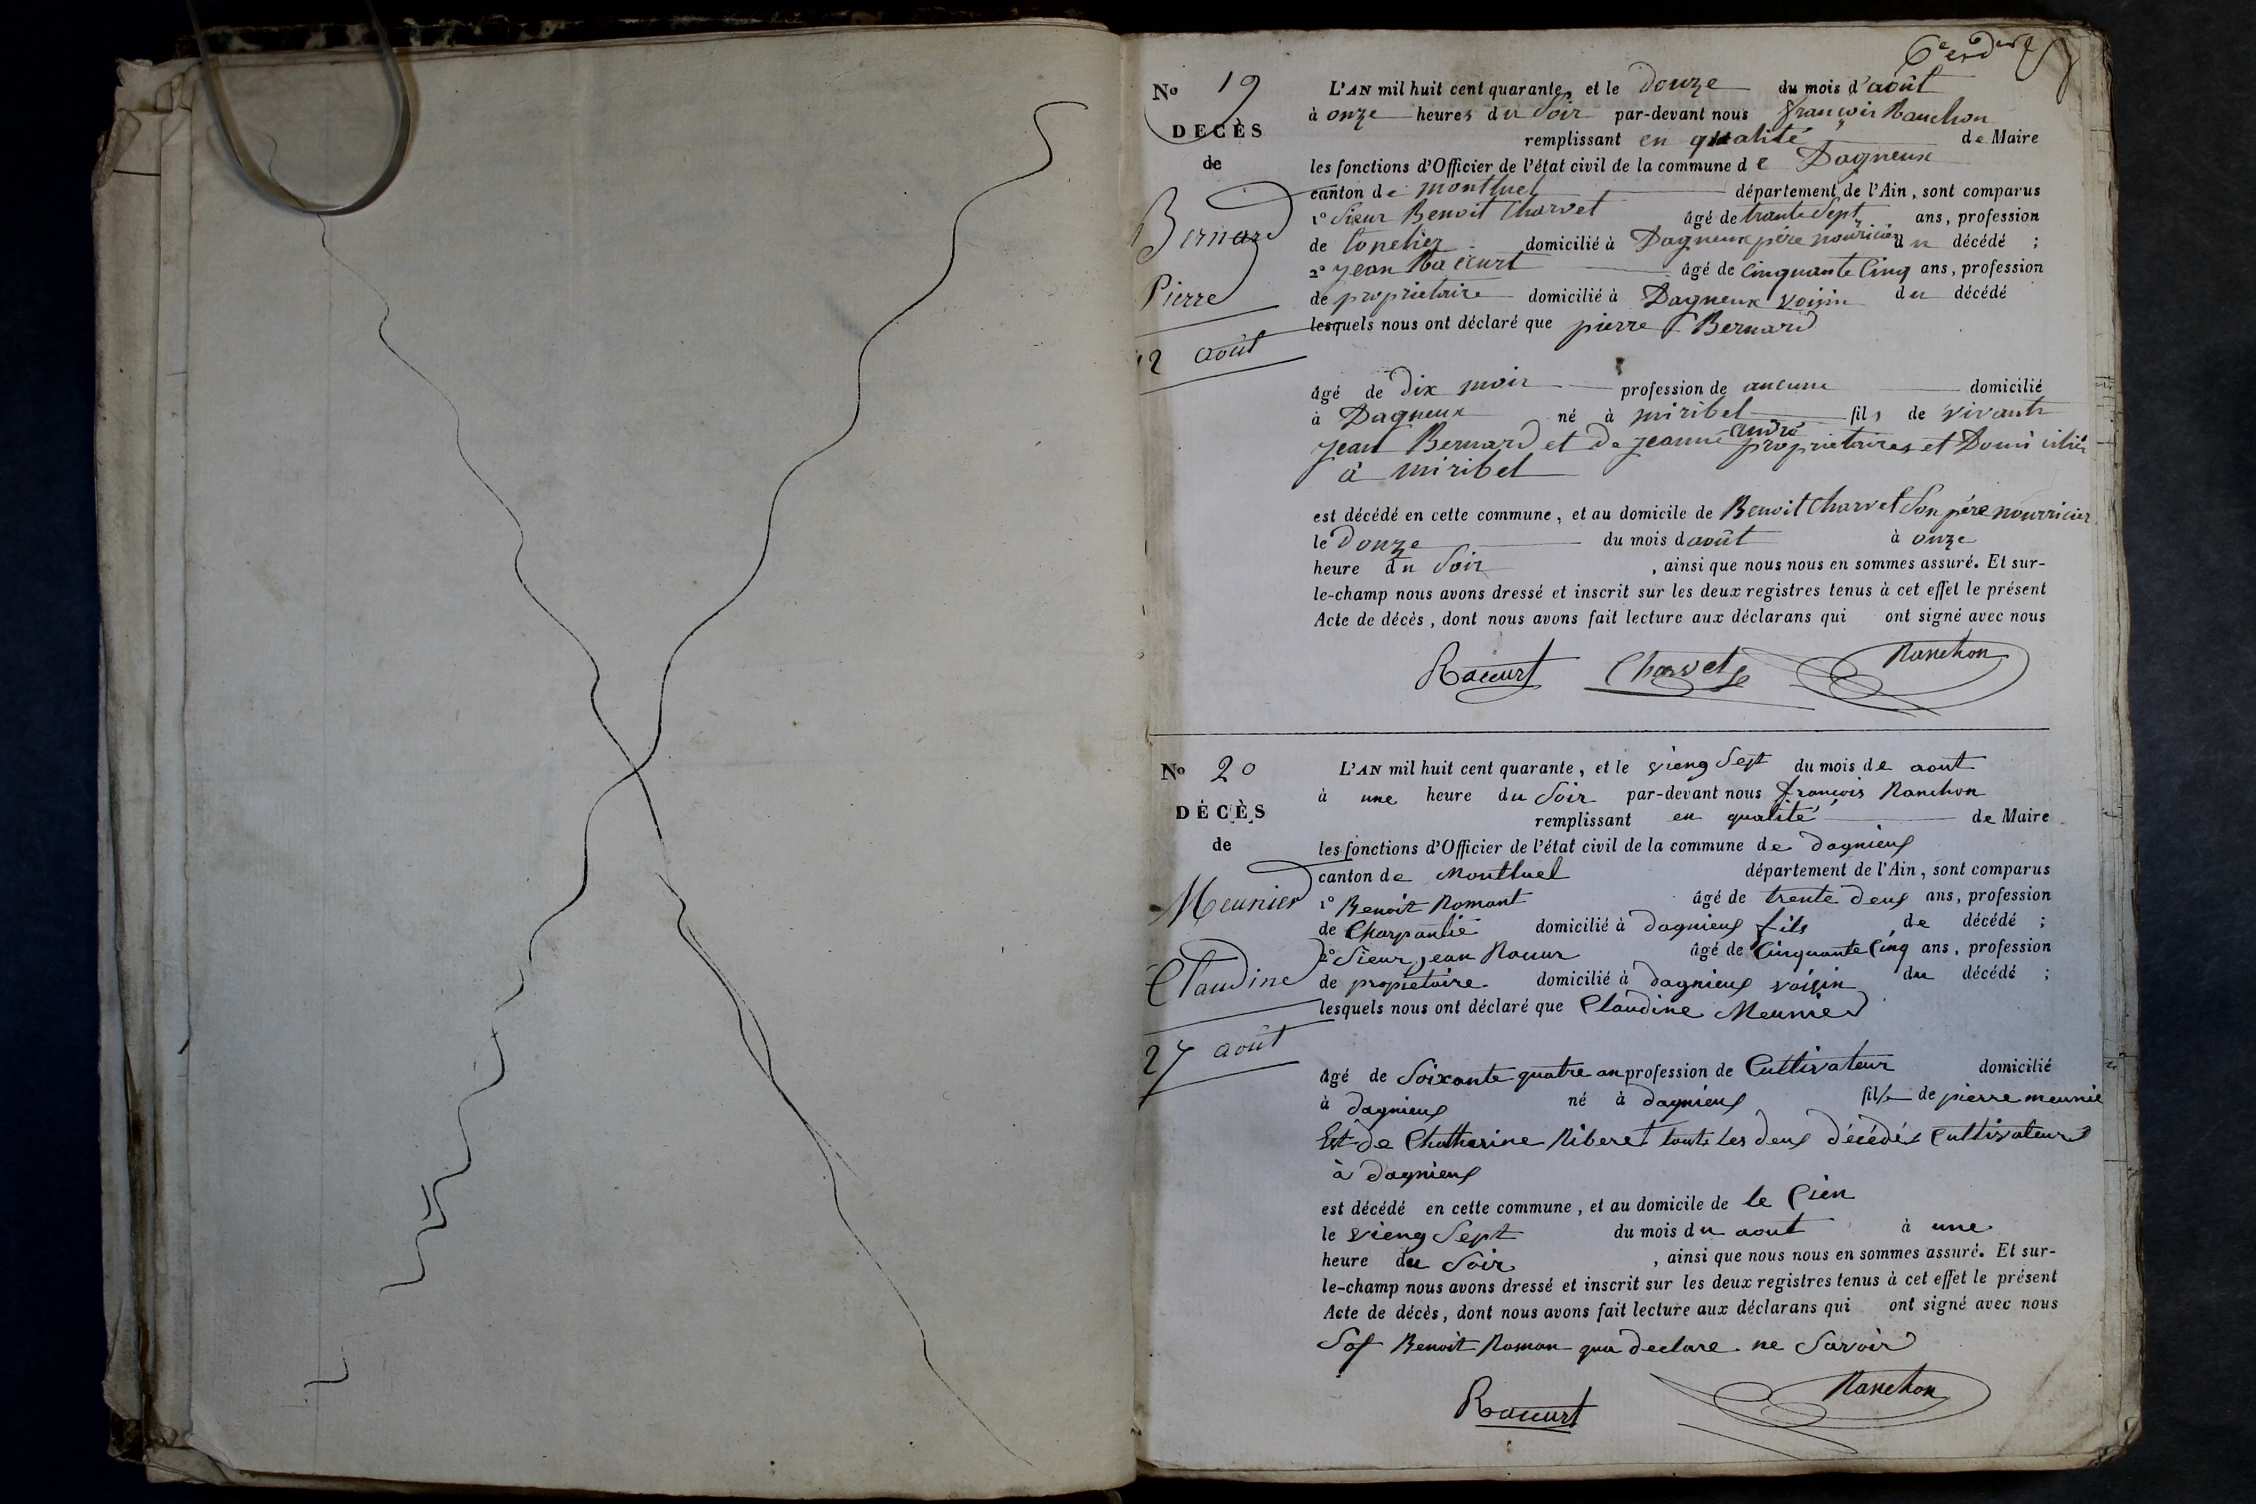 N° 19
DECÈS
de
Bernard
Pierre
12 août
L'AN mil huit cent quarante, et le Douze du mois d'août
à onze heures du Soir par-devant nous françois Ranchon
remplissant en qualité de Maire
les fonctions d'Officier de l'état civil de la commune de Dagneux
canton de montluel département de l'Ain, sont comparus
1° Sieur Benoit Charvet âgé de trante Sept ans, profession
de tonelier domicilié à Dagneux père nouricier du décédé ;
2° jean Raccurt âgé de Cinquante Cinq ans, profession
de proprietaire domicilié à Dagneux voisin du décédé
lesquels nous ont déclaré que pierre Bernard
âgé de Dix mois profession de aucune domicilié
à Dagneux né à miribel fils de vivants
jean Bernard et de jeanne andré proprietaires et Domicilié
à miribel
est décédé en cette commune, et au domicile de Benoit Charvet Son père nourricier
le Douze du mois d août à onze
heure du Soir , ainsi que nous nous en sommes assuré. Et sur-
le-champ nous avons dressé et inscrit sur les deux registres tenus à cet effet le présent
Acte de décès, dont nous avons fait lecture aux déclarans qui ont signé avec nous
Raccurt Charvet Ranchon
N° 20
DÉCÈS
de
Meunier
Claudine
27 août
L'AN mil huit cent quarante, et le vieng Sept du mois de aout
à une heure du Soir par-devant nous françois Ranchon
remplissant en qualité de Maire
les fonctions d'Officier de l'état civil de la commune de dagnieux
canton de Montluel département de l'Ain, sont comparus
1° Benoit Romant âgé de trente deux ans, profession
de Charpantié domicilié à dagnieux fils de décédé ;
2° Sieur jean Racur âgé de Cinquante Cinq ans, profession
de propiétaire domicilié à dagnieux voisin du décédé ;
lesquels nous ont déclaré que Claudine Meunier
âgé de Soixante quatre an profession de Cultivateur domicilié
à dagnieux né à dagnieux fille de pierre meunié
Est de Chatherine Riberet touts les deux décédés Cultivateurs
à dagnieux
est décédé en cette commune, et au domicile de le Cien
le vieng Sept du mois du aout à une
heure du Soir , ainsi que nous nous en sommes assuré. Et sur-
le-champ nous avons dressé et inscrit sur les deux registres tenus à cet effet le présent
Acte de décès, dont nous avons fait lecture aux déclarans qui ont signé avec nous
Sof Benoit Roman qua declare ne Savoir
Raccurt Ranchon